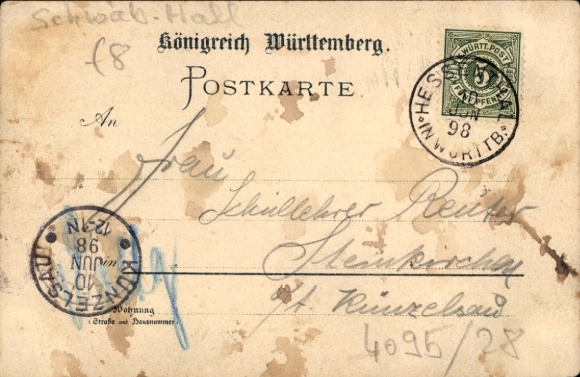 Schwäb. Hall
Königreich Württemberg.
POSTKARTE.
WÜRTT. POST
5
FÜNF PFENNIG
HESSENTHAL
JUN
98
IN WÜRTTB.
An
Frau
Schullehrer Reuter
in
Steinkirchen
Künzelsau
KÜNZELSAU
10
JUN
98
12-1N
Wohnung
(Straße und Hausnummer)
4095/28